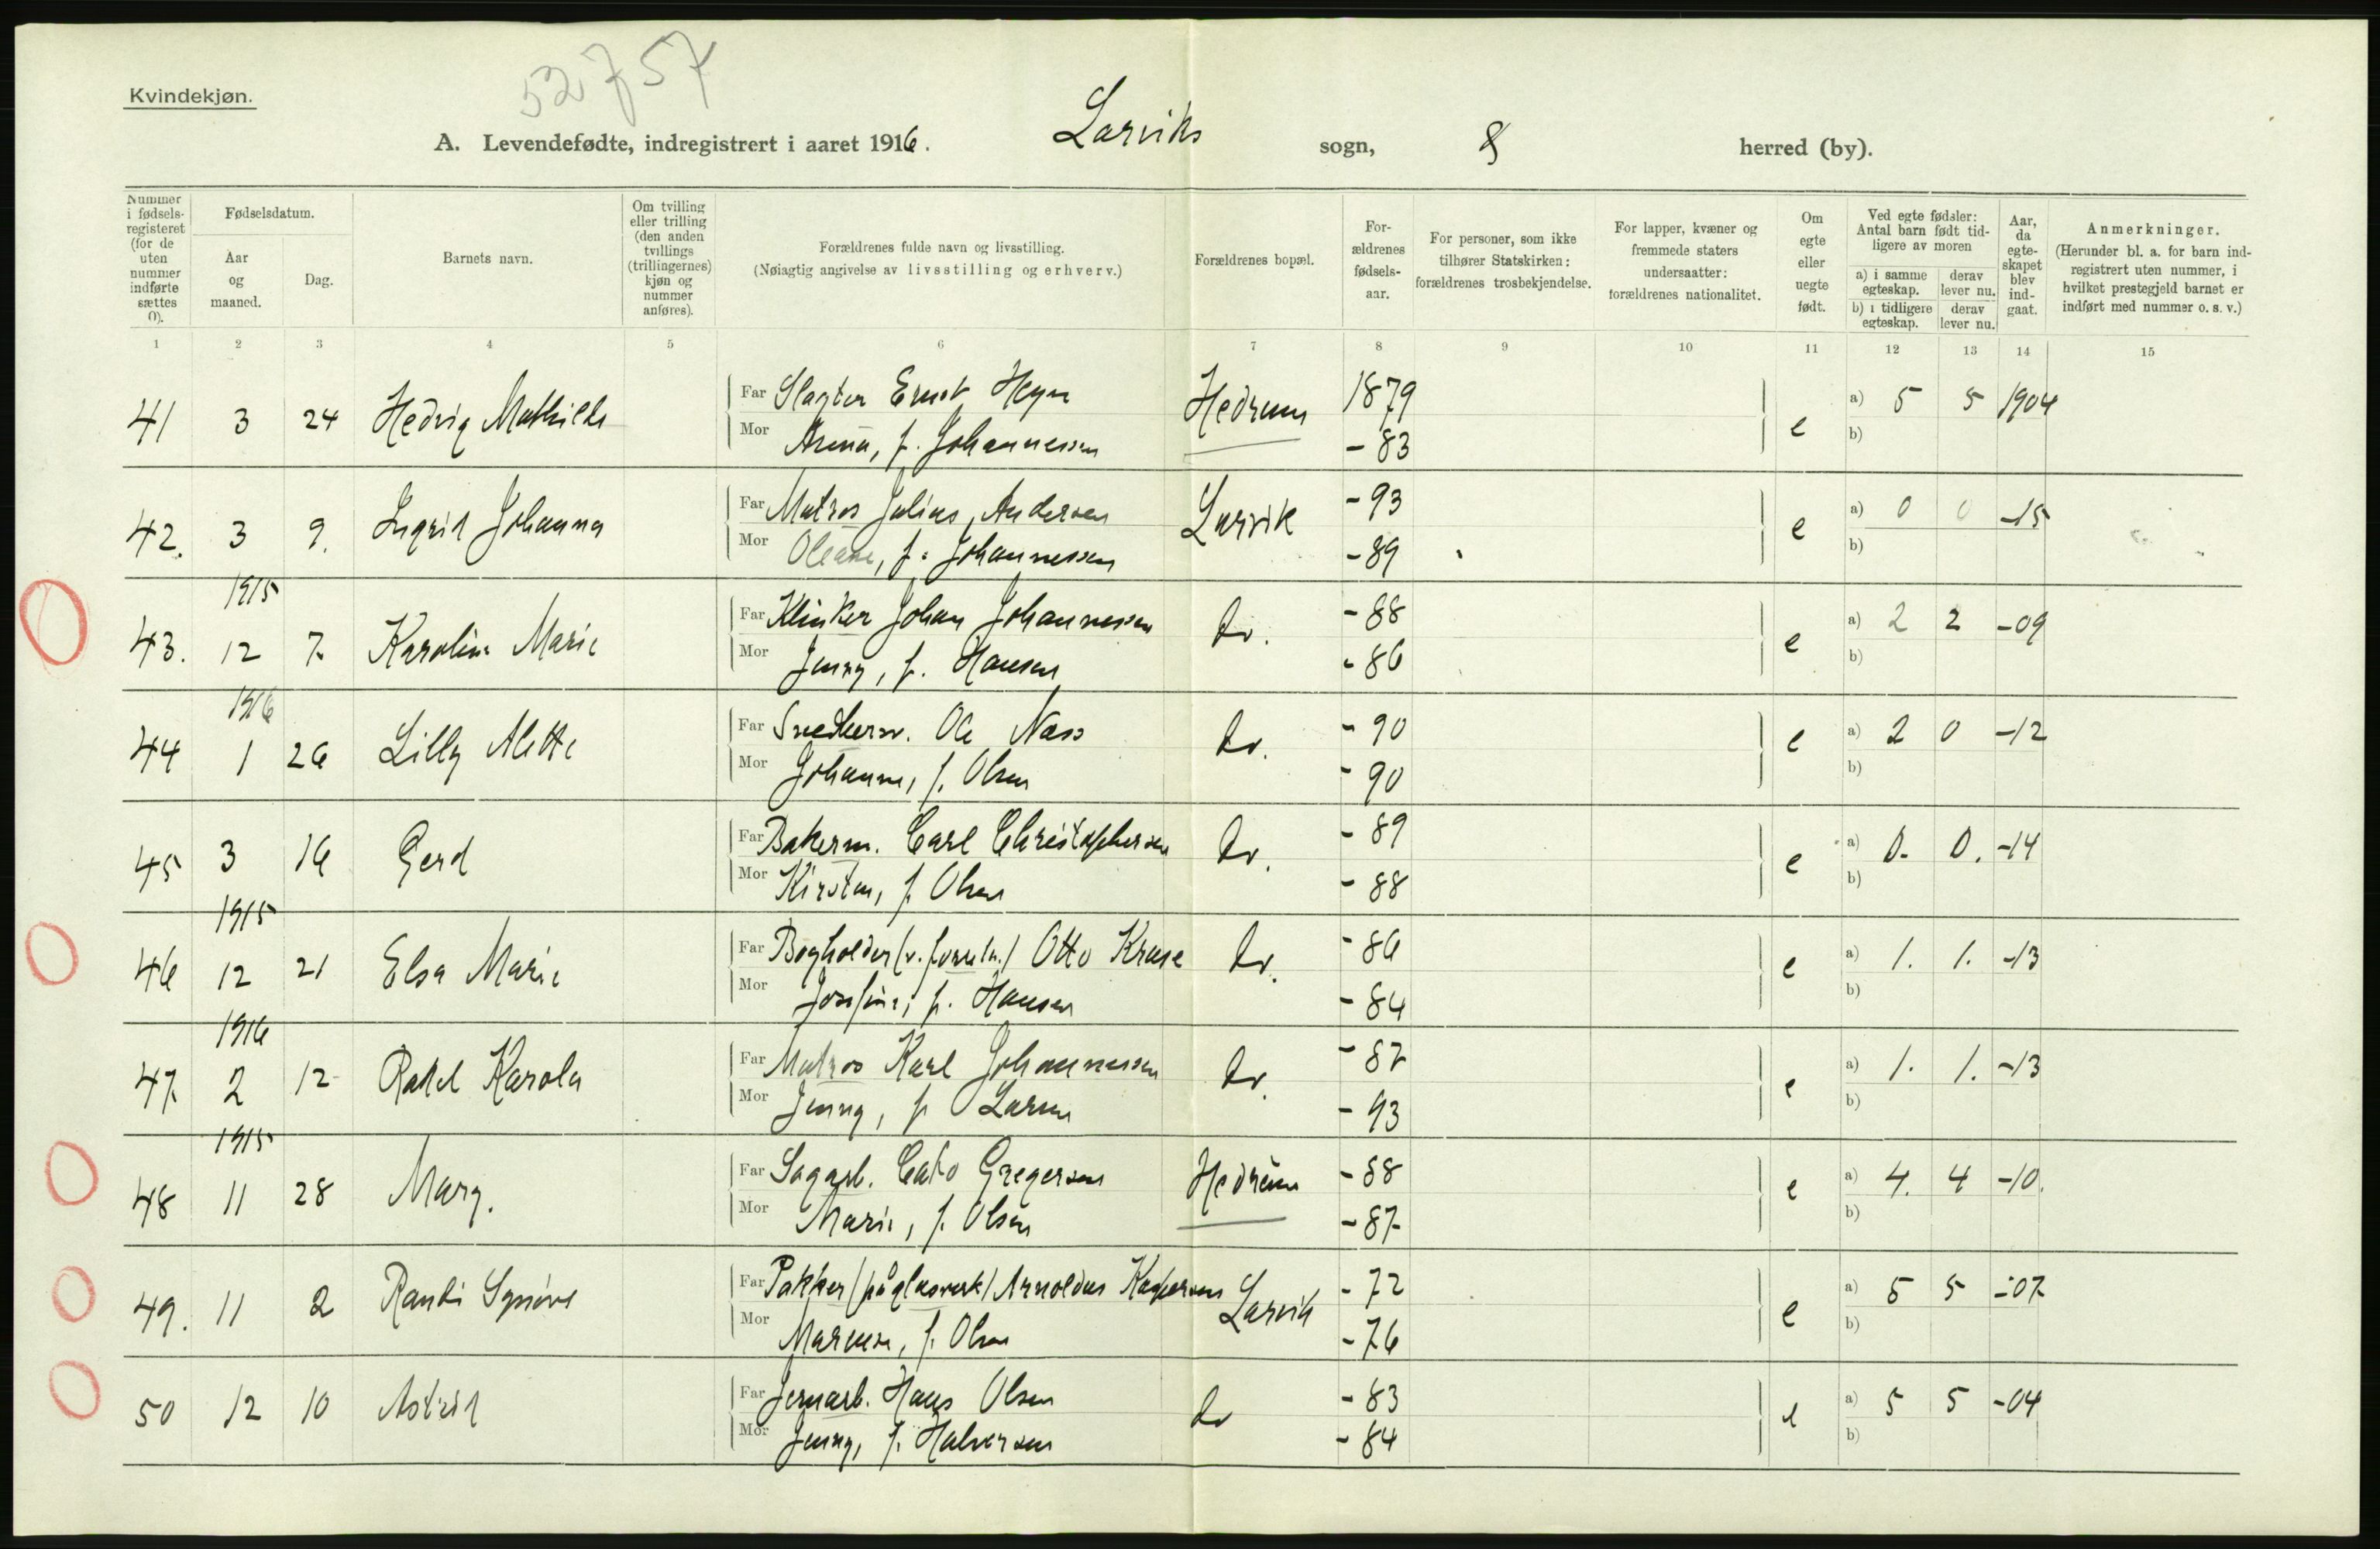 52757
Kvindekjøn.
A. Levendefødte, indregistrert i aaret 1916. Larviks sogn, 8 herred (by).
Nummer i fødsels-registeret (for de uten nummer indførte sættes 0).
Fødselsdatum.
Aar og maaned.
Dag.
Barnets navn.
Om tvilling eller trilling (den anden tvillings (trillingernes) kjøn og nummer anføres).
Forældrenes fulde navn og livsstilling.
(Nøiagtig angivelse av livsstilling og erhverv.)
Forældrenes bopæl.
For-ældrenes fødsels-aar.
For personer, som ikke tilhører Statskirken: forældrenes trosbekjendelse.
For lapper, kvæner og fremmede staters undersaatter: forældrenes nationalitet.
Om egte eller uegte født.
Ved egte fødsler: Antal barn født tid-ligere av moren
a) i samme egteskap.
derav lever nu.
b) i tidligere egteskap.
derav lever nu.
Aar, da egte-skapet blev ind-gaat.
Anmerkninger.
(Herunder bl. a. for barn ind-registrert uten nummer, i hvilket prestegjeld barnet er indført med nummer o. s. v.)
1 2 3 4 5 6 7 8 9 10 11 12 13 14 15
41 3 24 Hedvig Mathilde Far Slagter Ernst Heyn Hedrum 1879 e a) 5 5 1904
Mor Arena, f. Johannessen - 83 b)
42. 3 9. Ingrid Johanna Far Matros Julius Andersen Larvik - 93 e a) 0 0 -15
Mor Oleane, f. Johannessen - 89 b)
1915
43. 12 7. Karoline Marie Far Klinker Johan Johannessen do. - 88 e a) 2 2 -09
Mor Jenny, f. Hansen - 86 b)
1916
44 1 26 Lilly Alette Far Snedkerm. Ole Næss do. - 90 e a) 2 0 -12
Mor Johanne, f. Olsen - 90 b)
45 3 16 Gerd Far Bakerm. Carl Christophersen do. - 89 e a) 0. 0. -14
Mor Kirsten, f. Olsen - 88 b)
1915
46 12 21 Elsa Marie Far Bogholder (v. forretn.) Otto Kruse do. - 86 e a) 1. 1. -13
Mor Josefine, f. Hansen - 84 b)
1916
47. 2 12 Rakel Karola Far Matros Karl Johannessen do. - 87 e a) 1. 1. -13
Mor Jenny, f. Larsen - 93 b)
1915
48 11 28 Mary. Far Sagarb. Cato Gregersen Hedrum - 88 e a) 4. 4 -10.
Mor Marie, f. Olsen - 87 b)
49. 11 2 Randi Synöve Far Pakker (på glasverk) Arnoldus Kaspersen Larvik - 72 e a) 5 5 -07
Mor f. Olsen - 76 b)
50 12 10 Astrid Far Jernarb. Hans Olsen do - 83 e a) 5 5 -04
Mor Jenny, f. Halvorsen - 84 b)